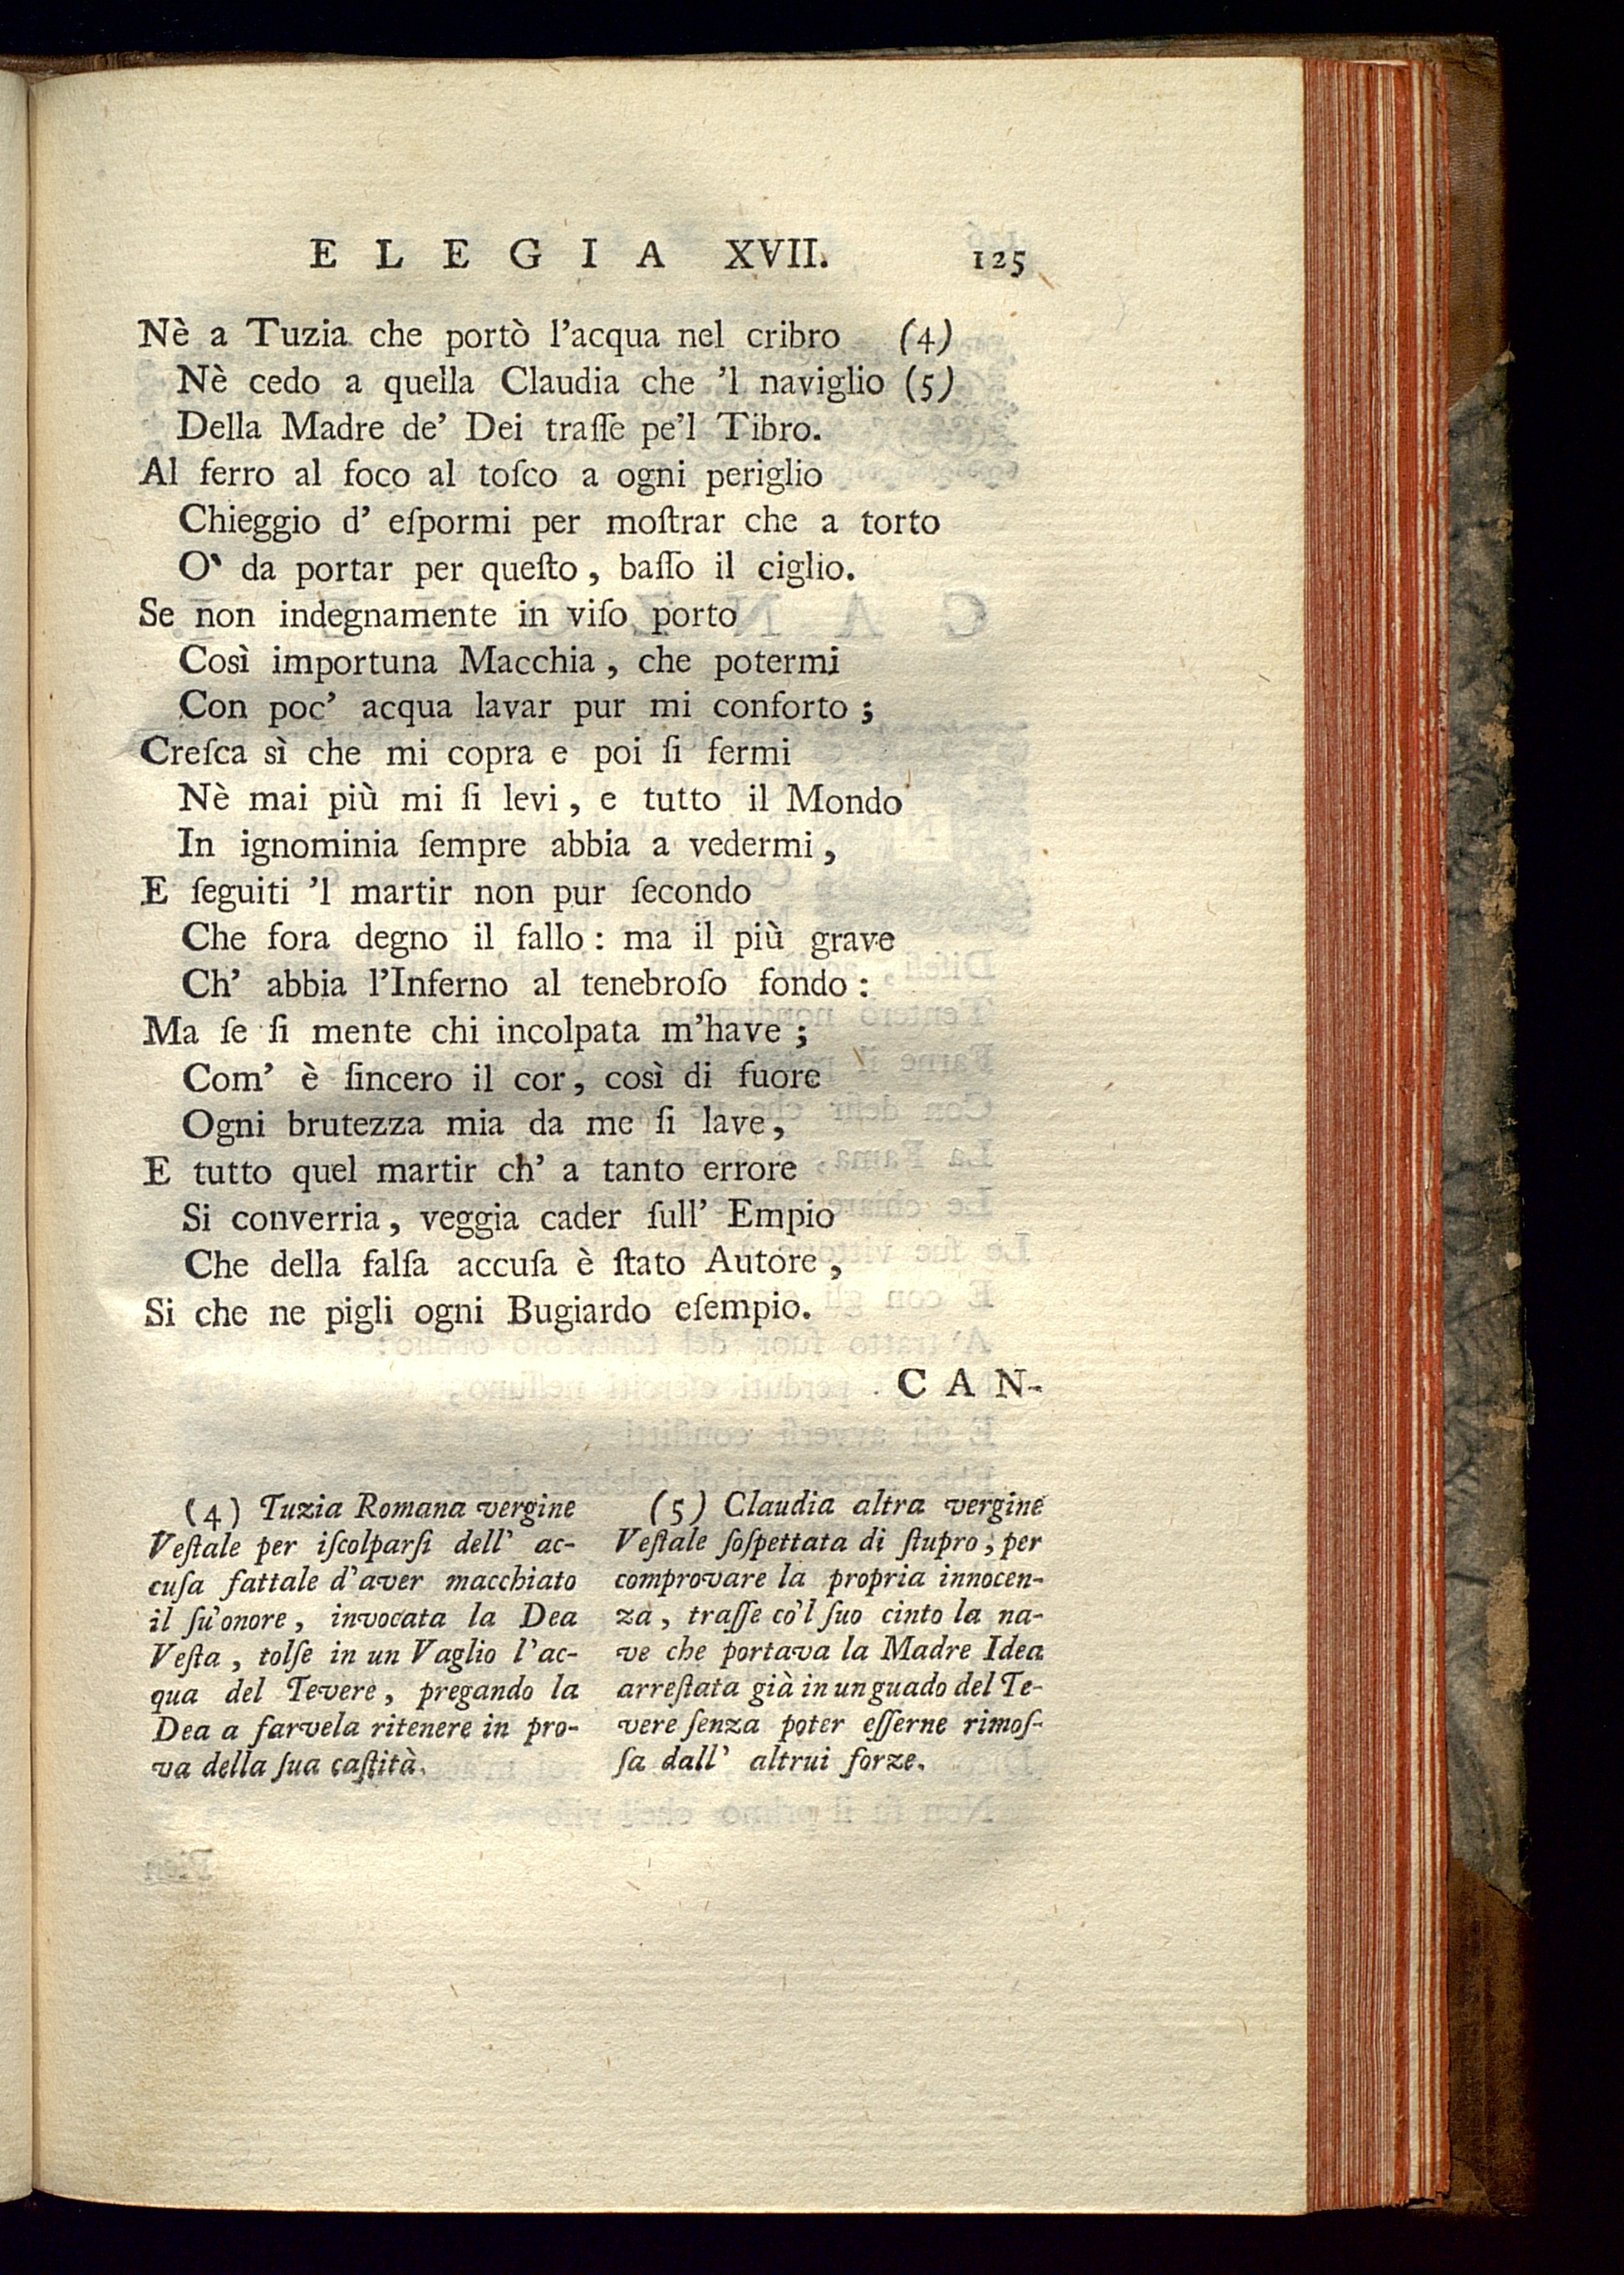 ELEGIA XVII. 125
Nè a Tuzia che portò l'acqua nel cribro (4)
Nè cedo a quella Claudia che 'l naviglio (5)
Della Madre de' Dei traſſe pe'l Tibro.
Al ferro al foco al toſco a ogni periglio
Chieggio d' eſpormi per moſtrar che a torto
O` da portar per queſto, baſſo il ciglio.
Se non indegnamente in viſo porto
Così importuna Macchia, che potermi
Con poc' acqua lavar pur mi conforto;
Creſca sì che mi copra e poi ſi fermi
Nè mai più mi ſi levi, e tutto il Mondo
In ignominia ſempre abbia a vedermi,
E ſeguiti 'l martir non pur ſecondo
Che fora degno il fallo: ma il più grave
Ch' abbia l'Inferno al tenebroſo fondo:
Ma ſe ſi mente chi incolpata m'have;
Com' è ſincero il cor, così di fuore
Ogni brutezza mia da me ſi lave,
E tutto quel martir ch' a tanto errore
Si converria, veggia cader ſull' Empio
Che della falſa accuſa è ſtato Autore,
Si che ne pigli ogni Bugiardo eſempio.
CAN-
(4) Tuzia Romana vergine
Veſtale per iſcolparſi dell' ac-
cuſa fattale d'aver macchiato
il ſu'onore, invocata la Dea
Veſta, tolſe in un Vaglio l'ac-
qua del Tevere, pregando la
Dea a farvela ritenere in pro-
va della ſua caſtità.
(5) Claudia altra vergine
Veſtale ſoſpettata di ſtupro, per
comprovare la propria innocen-
za, traſſe co'l ſuo cinto la na-
ve che portava la Madre Idea
arreſtata già in un guado del Te-
vere ſenza poter eſſerne rimoſ-
ſa dall' altrui forze.